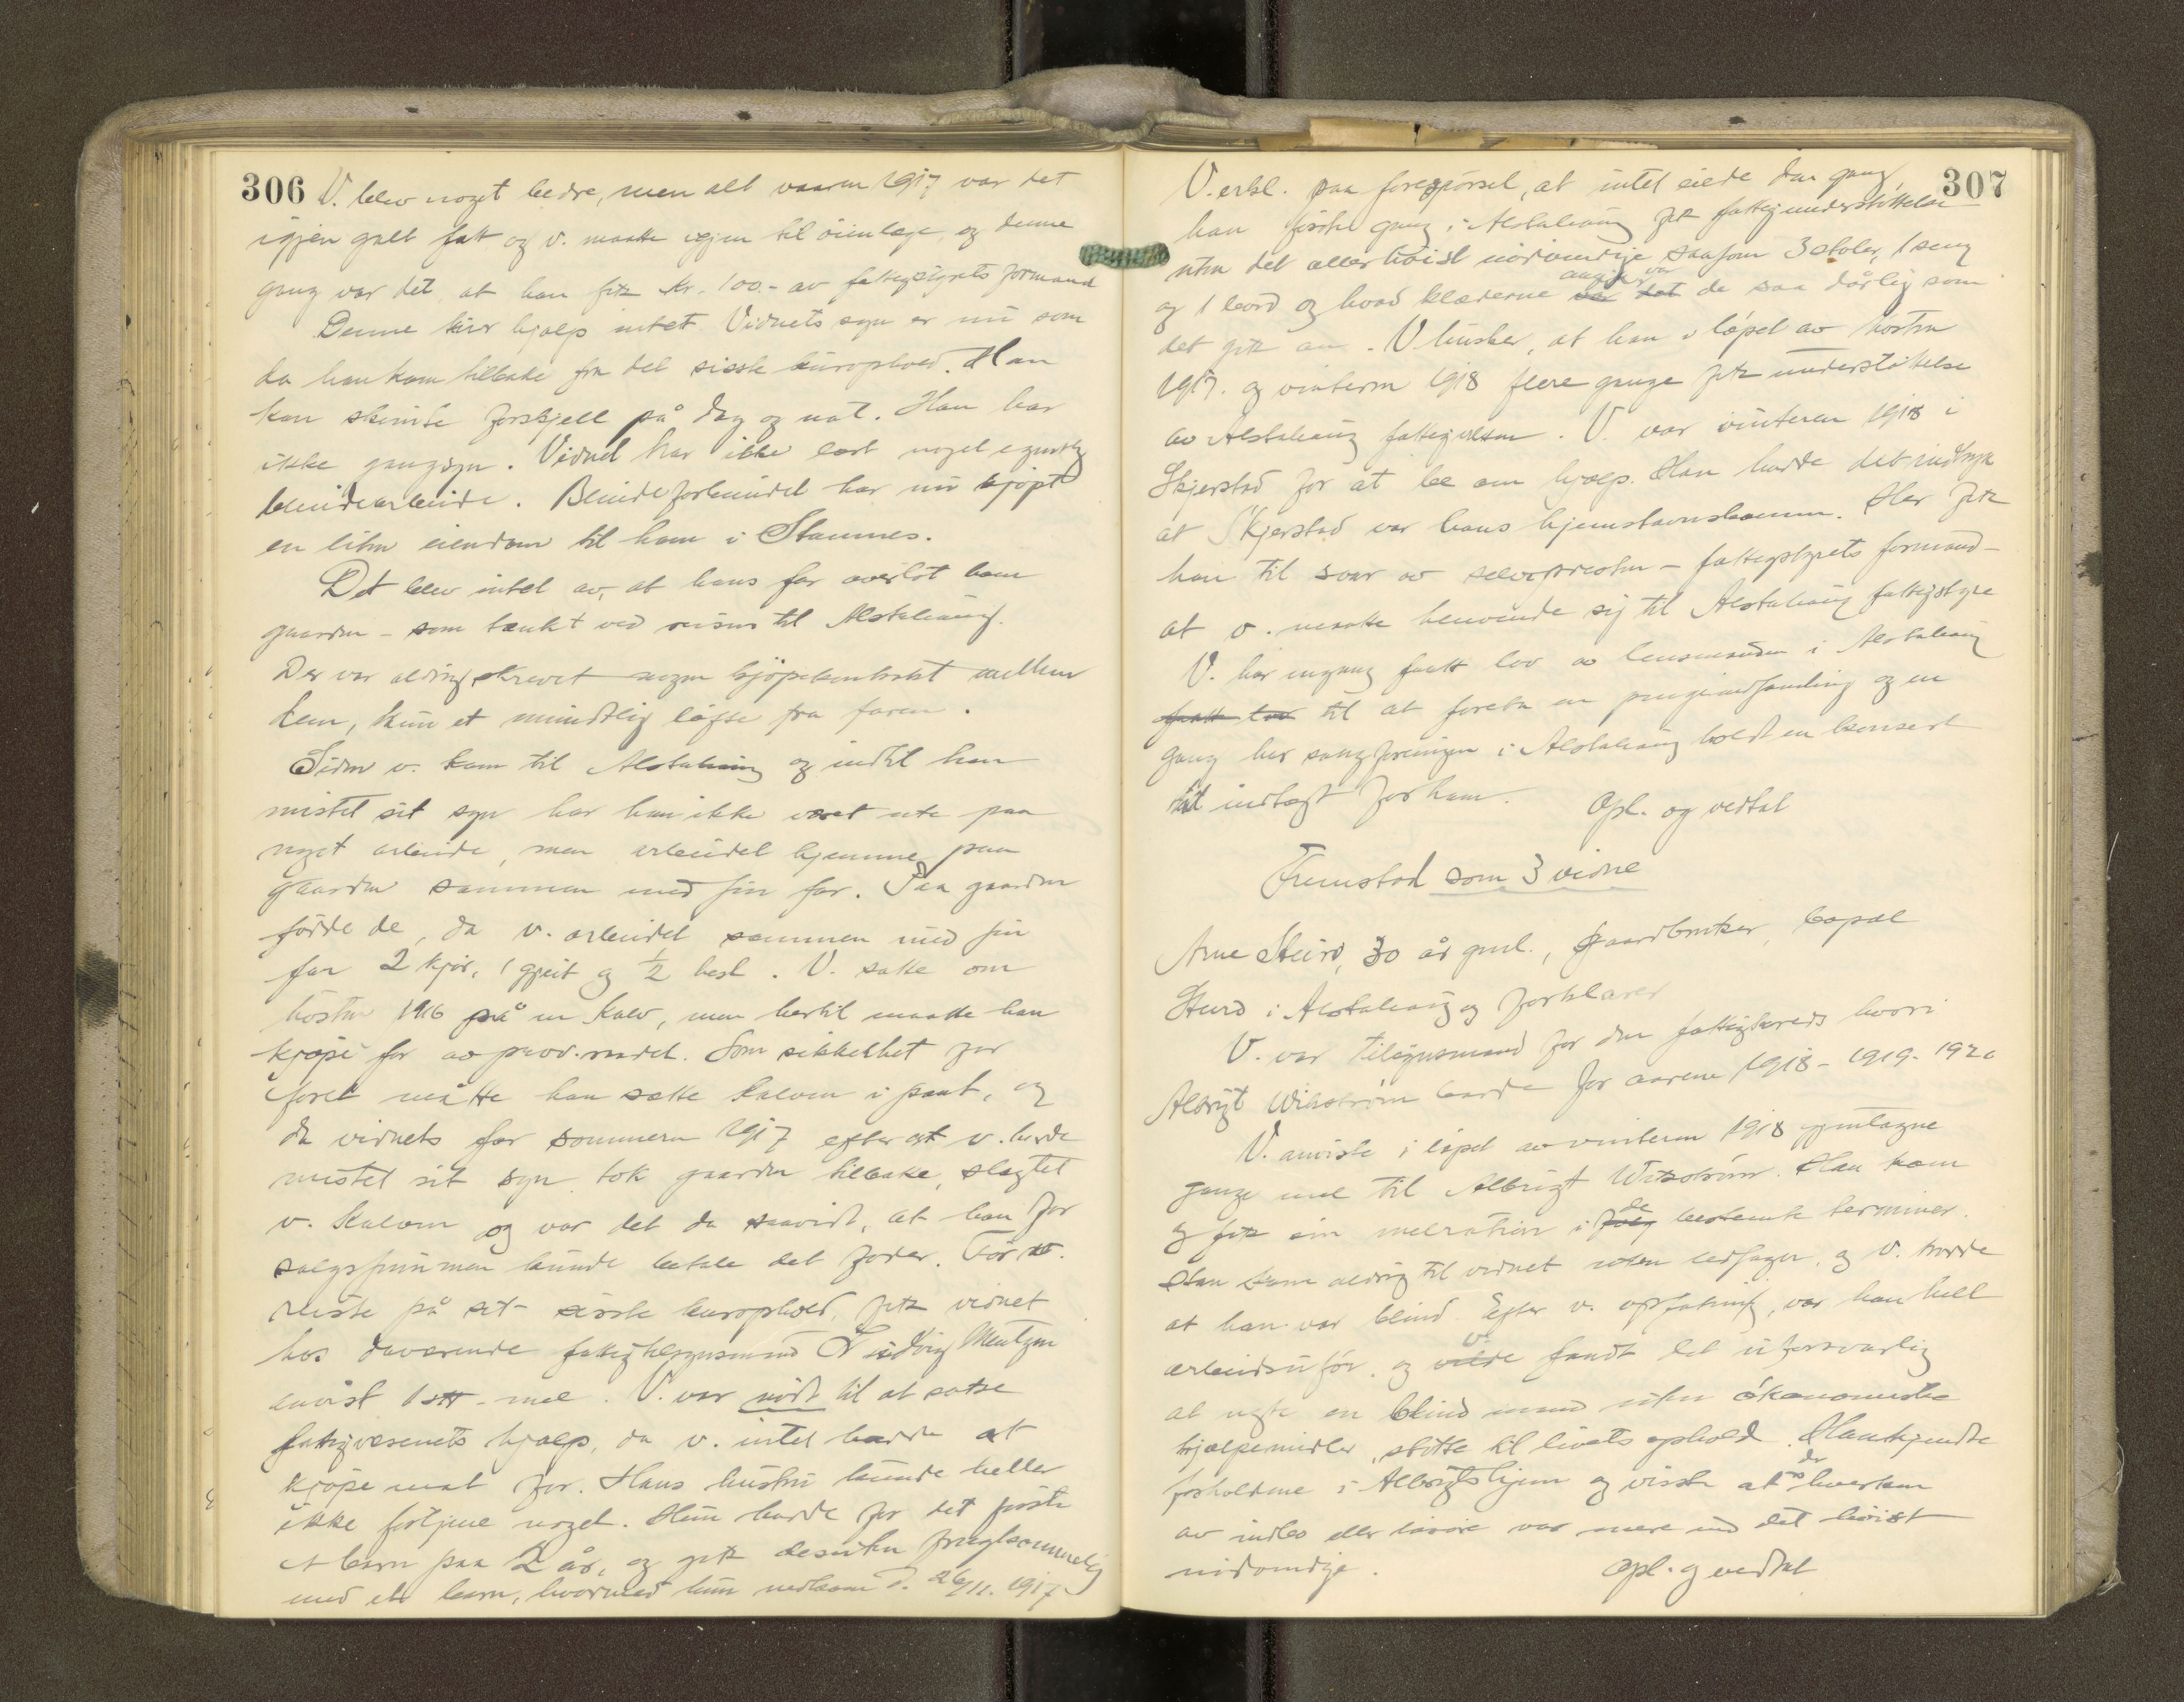 306
V. blev noget bedre, men alt vaaren 1917 var det
igjen galt fatt og v. maatte igjen til öienlæge, og denne
gang var det, at han fik Kr. 100.- av fattigstyrets formand
Denne kur hjalp intet. Vidnets syn er nu som
da han kom tilbake fra det sisste kurophold. Han
kan skimte forskjell på dag og nat. Han har
ikke gangsyn. Vidnet har ikke lært noget egentlig
blindearbeide. Blindeforbundet har nu kjöpt
en liten eiendom til ham i Stamnes.
Det blev intet av, at hans far overlot ham
gaarden - som tænkt ved reisen til Alstahaug.
Der var aldrig skrevet nogen kjöpekontrakt mellem
dem, kun et mundtlig löfte fra faren.
Siden v. kom til Alstahaug og indtil han
mistet sit syn har han ikke været ute paa
noget arbeide, men arbeidet hjemme paa
gaarden sammen med sin far. Paa gaarden
födde de, da v. arbeidet sammen med sin
far 2 kjör, 1 gjeit og ½ hest. V. satte om
hösten 1916 på en kalv, men hertil maatte han
kjöpe for av prov.raadet. Som sikkerhet for
foret måtte han sætte kalven i pant, og
da vidnets far sommeren 1917 efter at v. havde
mistet sit syn tok gaarden tilbake, slagtet
v. kalven og var det da saavidt, at han for
salgssummen kunde betale det foder. Før v.
reiste på sit sisste kurophold, fik vidnet
hos daværende fattigtilsynsmand Ludvig Mentzen
anvist 1 sk. mel. V. var nödt til at sætse
fattigvæsenets hjælp, da v. intet hadde at
kjöpe mat for. Hans hustru kunde heller
ikke fortjene noget. Hun havde for det förste
et barn paa 2 år, og gik desuten frugtsommelig
med et barn, hvormed hun nedkom d. 26/11. 1917
307
V. erkl. paa forespörsel, at intet eiede den gang
han förste gang i Alstahaug fik fattigunderstöttelse
uten det aller höist nödvendige saasom 3 stoler, 1 seng
og 1 bord og hvad klæderne angik var de saa dårlig som
det gik an. V. husker, at han i löpet av hösten
1917. og vinteren 1918 flere gange fik understöttelse
av Alstahaug fattigvæsen. V. var vinteren 1918 i
Skjerstad for at be om hjælp. Han hadde det indtryk
at Skjerstad var hans hjemstavnskomm. Her fik
han til svar av selve presten - fattigstyrets formand -
at v. maatte henvende sig til Alstahaug fattigstyre
V. har engang faatt lov av lensmanden i Alstahaug
faatt lov til at foreta en pengeindsamling og en
gang har sangforeningen i Alstahaug holdt en konsert
til indtægt for ham.
Opl. og vedtat
Fremstod som 3 vidne
Arne Sturö, 30 år gml., gaardbruker, bopæl
Sturö i Alstahaug og forklarer
V. var tilsynsmand for den fattigkreds hvori
Albrigt Wikström bodde for aarene 1918 - 1919 - 1920
V. anviste i löpet av vinteren 1918 gjentagne
gange mel til Albrigt Wikström. Han kom
og fik sin melration i de bestemte terminer.
Han kom aldrig til vidnet uten ledsager, og v. trodde
at han var blind. Efter v. opfatning, var han helt
arbeidsuför, og v. fandt det uforsvarlig
at negte en blind mand uten ökonomiske
hjælpemidler, stötte til livets ophold. Han kjendte
forholdene i Albrigts hjem og visste at der hverken
av indbo eller lösöre var mere end det höist
nödvendige.
Opl. og vedtat